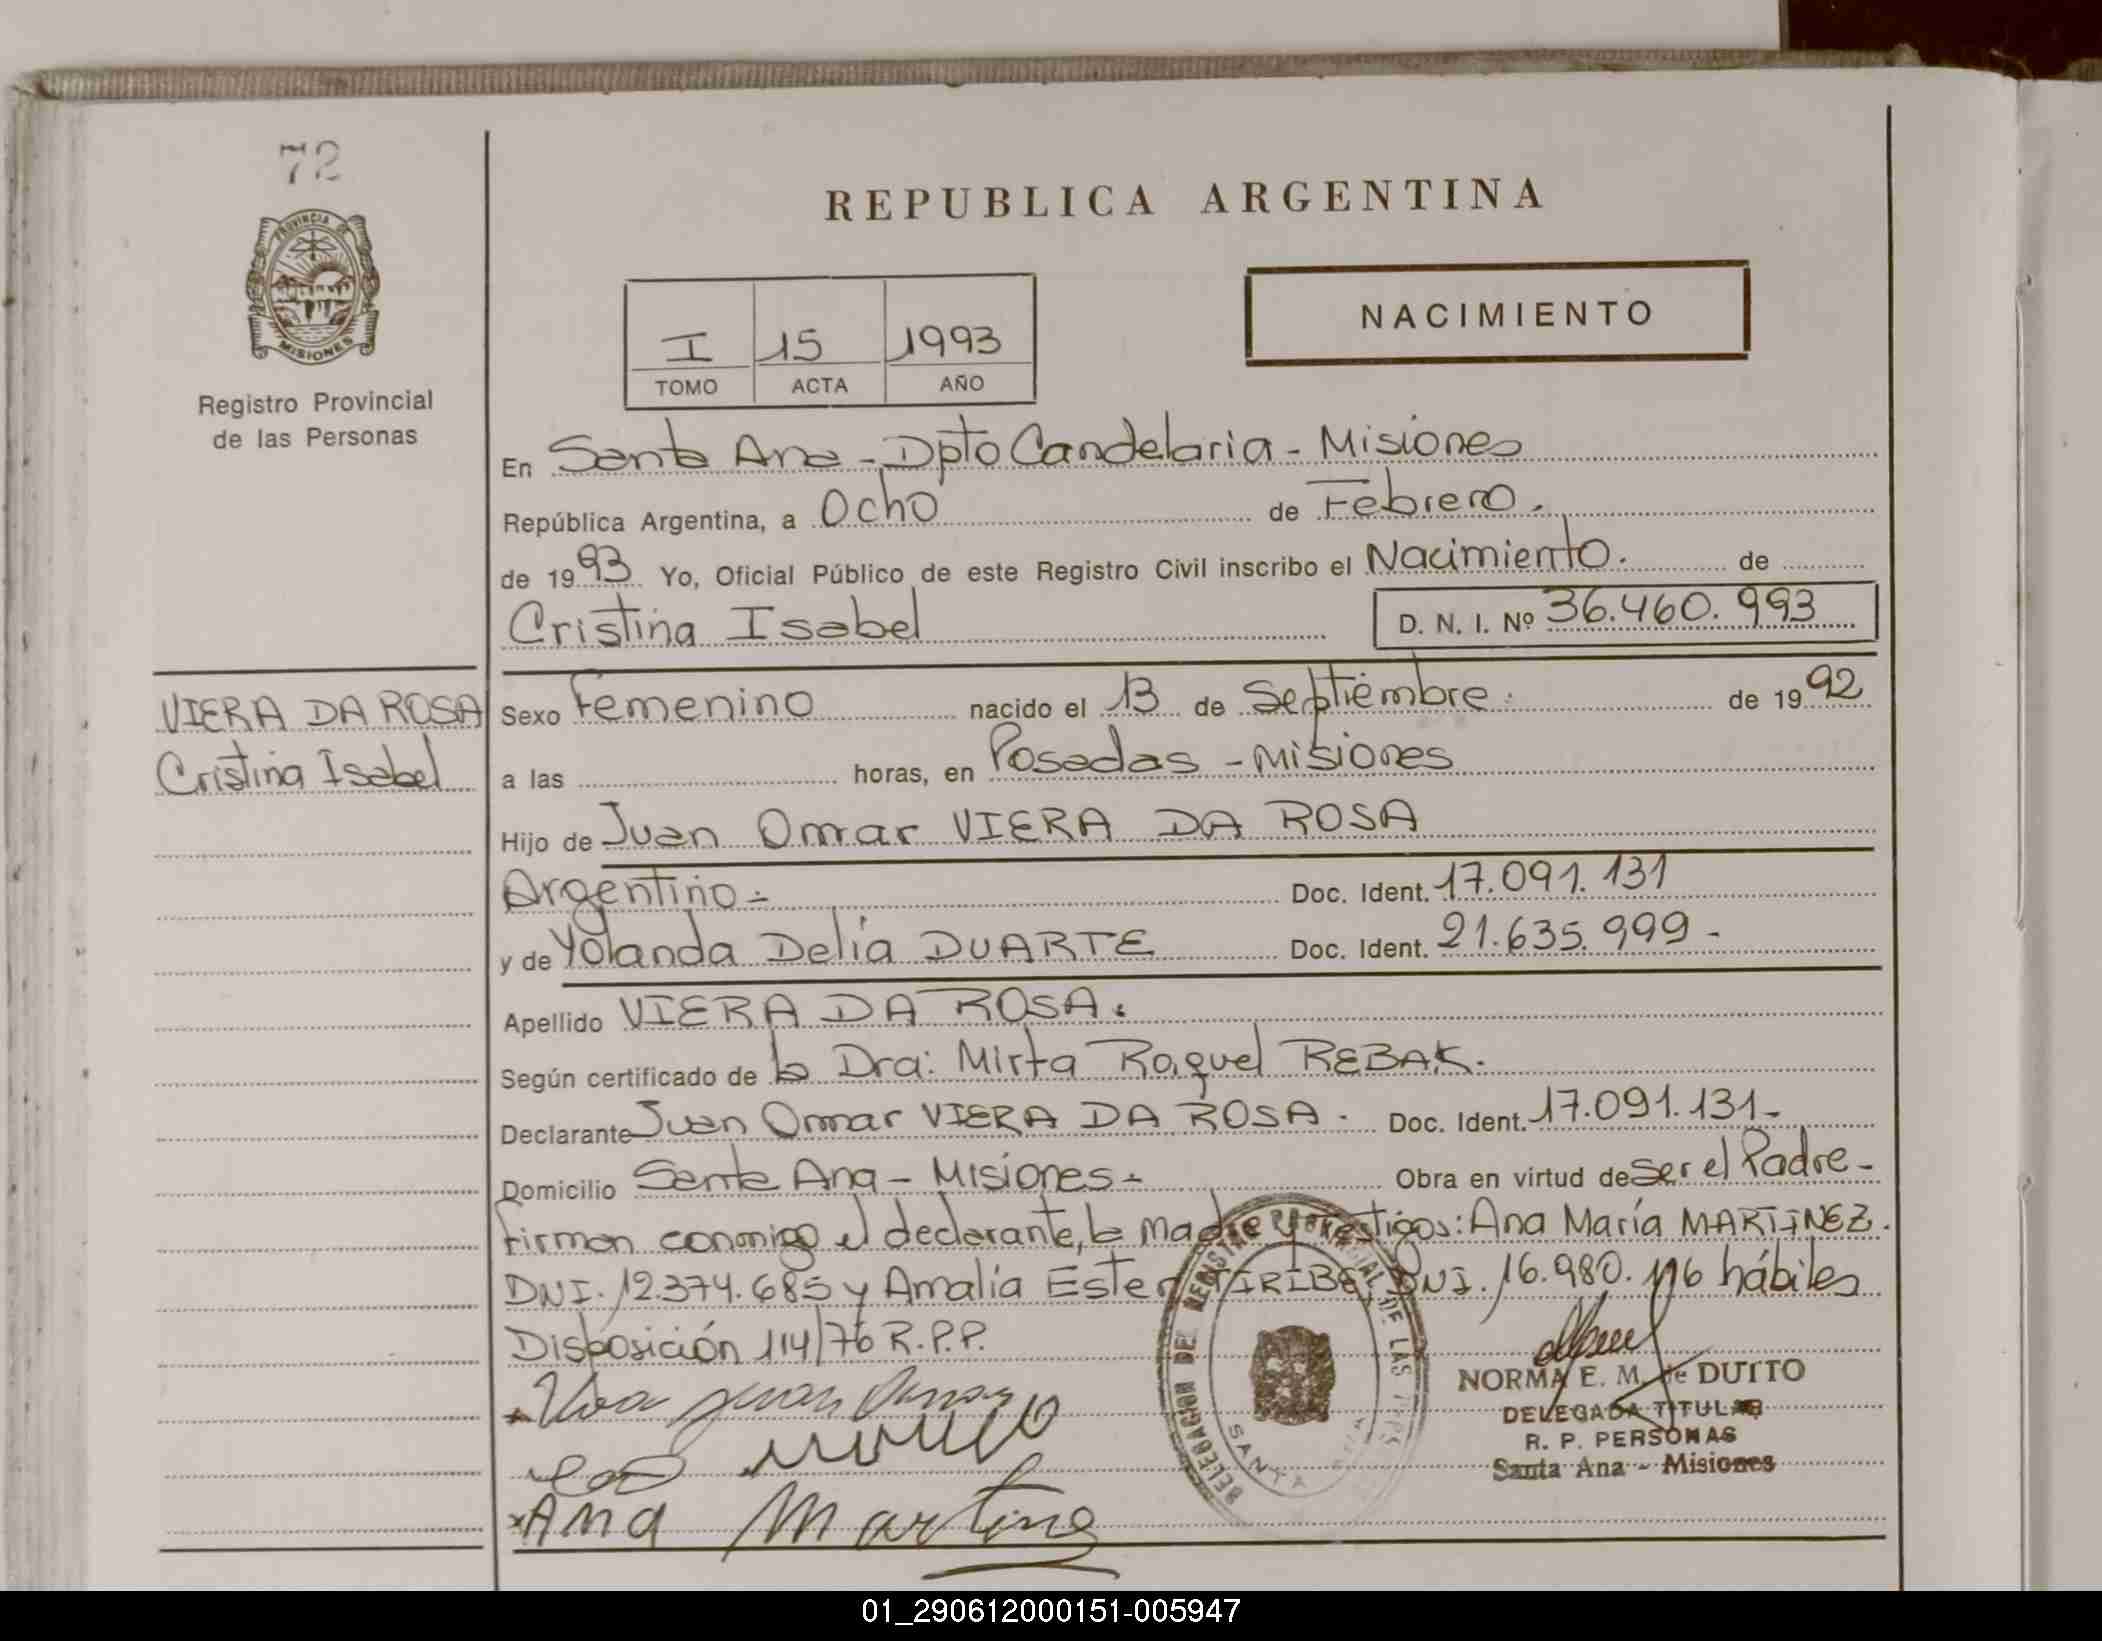 72
PROVINCIA DE
MISIONES
Registro Provincial
de las Personas
REPUBLICA ARGENTINA
I 15 1993
TOMO ACTA AÑO
NACIMIENTO
En Santa Ana - Dpto Candelaria - Misiones
República Argentina, a Ocho de Febrero.
de 1993 Yo, Oficial Público de este Registro Civil inscribo el Nacimiento. de
Cristina Isabel D. N. I. Nº 36.460.993
VIERA DA ROSA
Cristina Isabel
Sexo Femenino nacido el 13 de Septiembre. de 1992
a las horas, en Posadas - Misiones
Hijo de Juan Omar VIERA DA ROSA
Argentino.- Doc. Ident. 17.091.131
y de Yolanda Delia DUARTE Doc. Ident. 21.635.999-
Apellido VIERA DA ROSA.
Según certificado de la Dra: Mirta Raquel REBAK.
Declarante Juan Omar VIERA DA ROSA. Doc. Ident. 17.091.131-
Domicilio Santa Ana - Misiones.- Obra en virtud de ser el Padre-
firman conmigo el declarante, la madre y testigos: Ana María MARTINEZ.
DNI. 12.374.685 y Amalia Ester DNI. 16.980.116 hábiles
Disposición 114/76 R.P.P.
DELEGACION DEL REGISTRO PROVINCIAL DE LAS
SANTA ANA
NORMA E. M. de DUTTO
DELEGADA TITULAR
R. P. PERSONAS
Santa Ana - Misiones
Ana Martinez
01_290612000151-005947